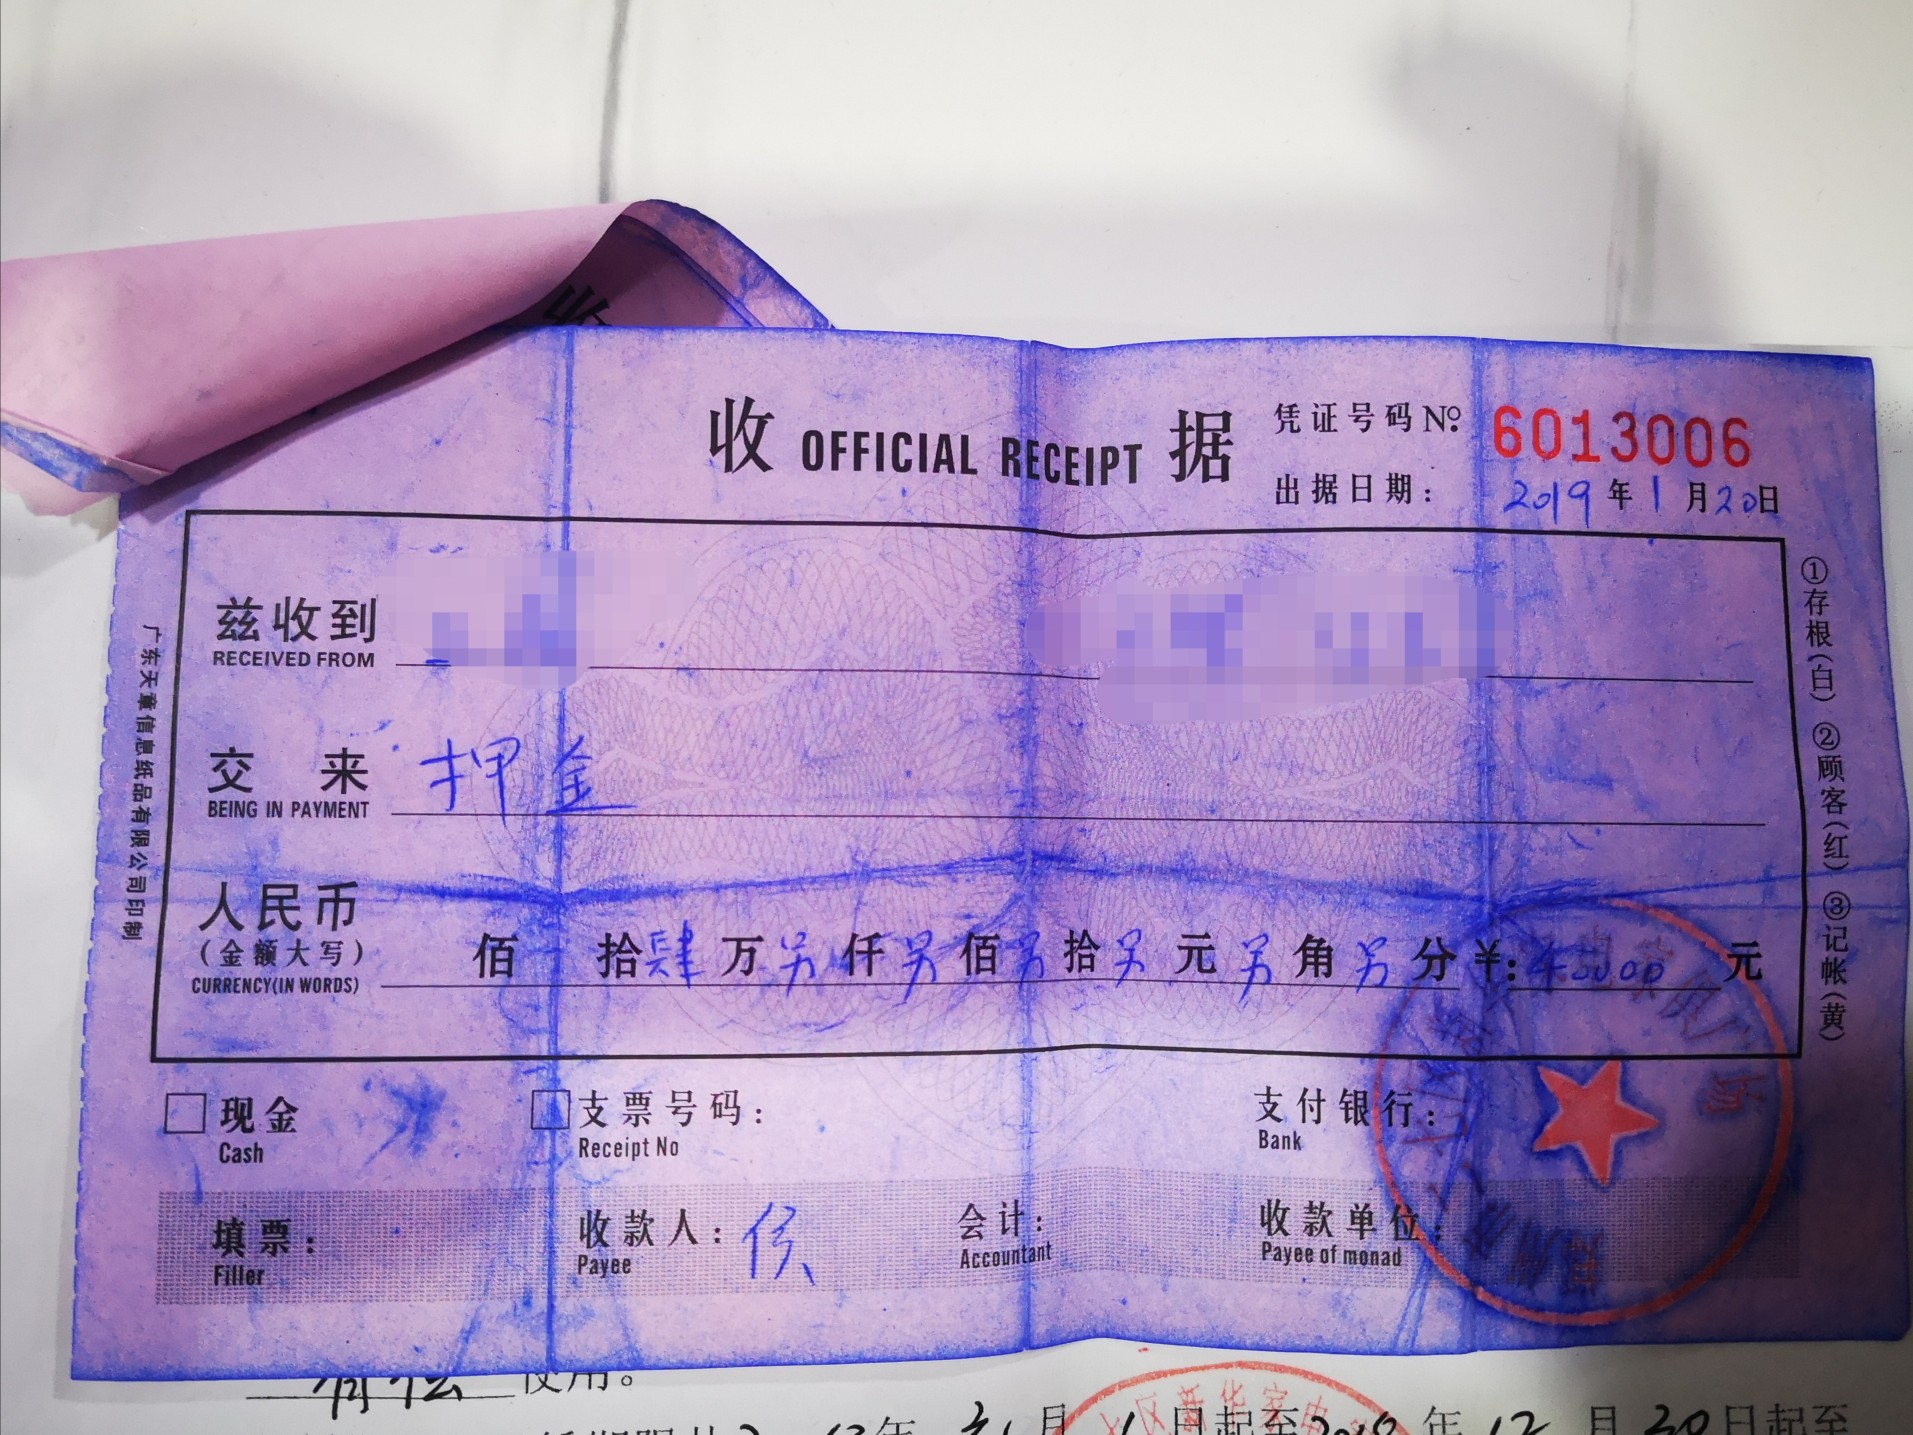 收 OFFICIAL RECEIPT 据
凭证号码 Nº: 6013006
出据日期: 2019年1月20日
兹收到
RECEIVED FROM
交来 押金
BEING IN PAYMENT
人民币
(金额大写)
佰 拾肆万另仟另佰另拾另元另角另分¥: 40000 元
CURRENCY(IN WORDS)
现金
Cash
支票号码:
Receipt No
支付银行:
Bank
填票:
Filler
收款人: 侯
Payee
会计:
Accountant
收款单位:
Payee of monad
广东天章信息纸品有限公司印制
①存根(白) ②顾客(红) ③记帐(黄)
使用。
区新华家电
年 月 1日起至2018年12月30日起至